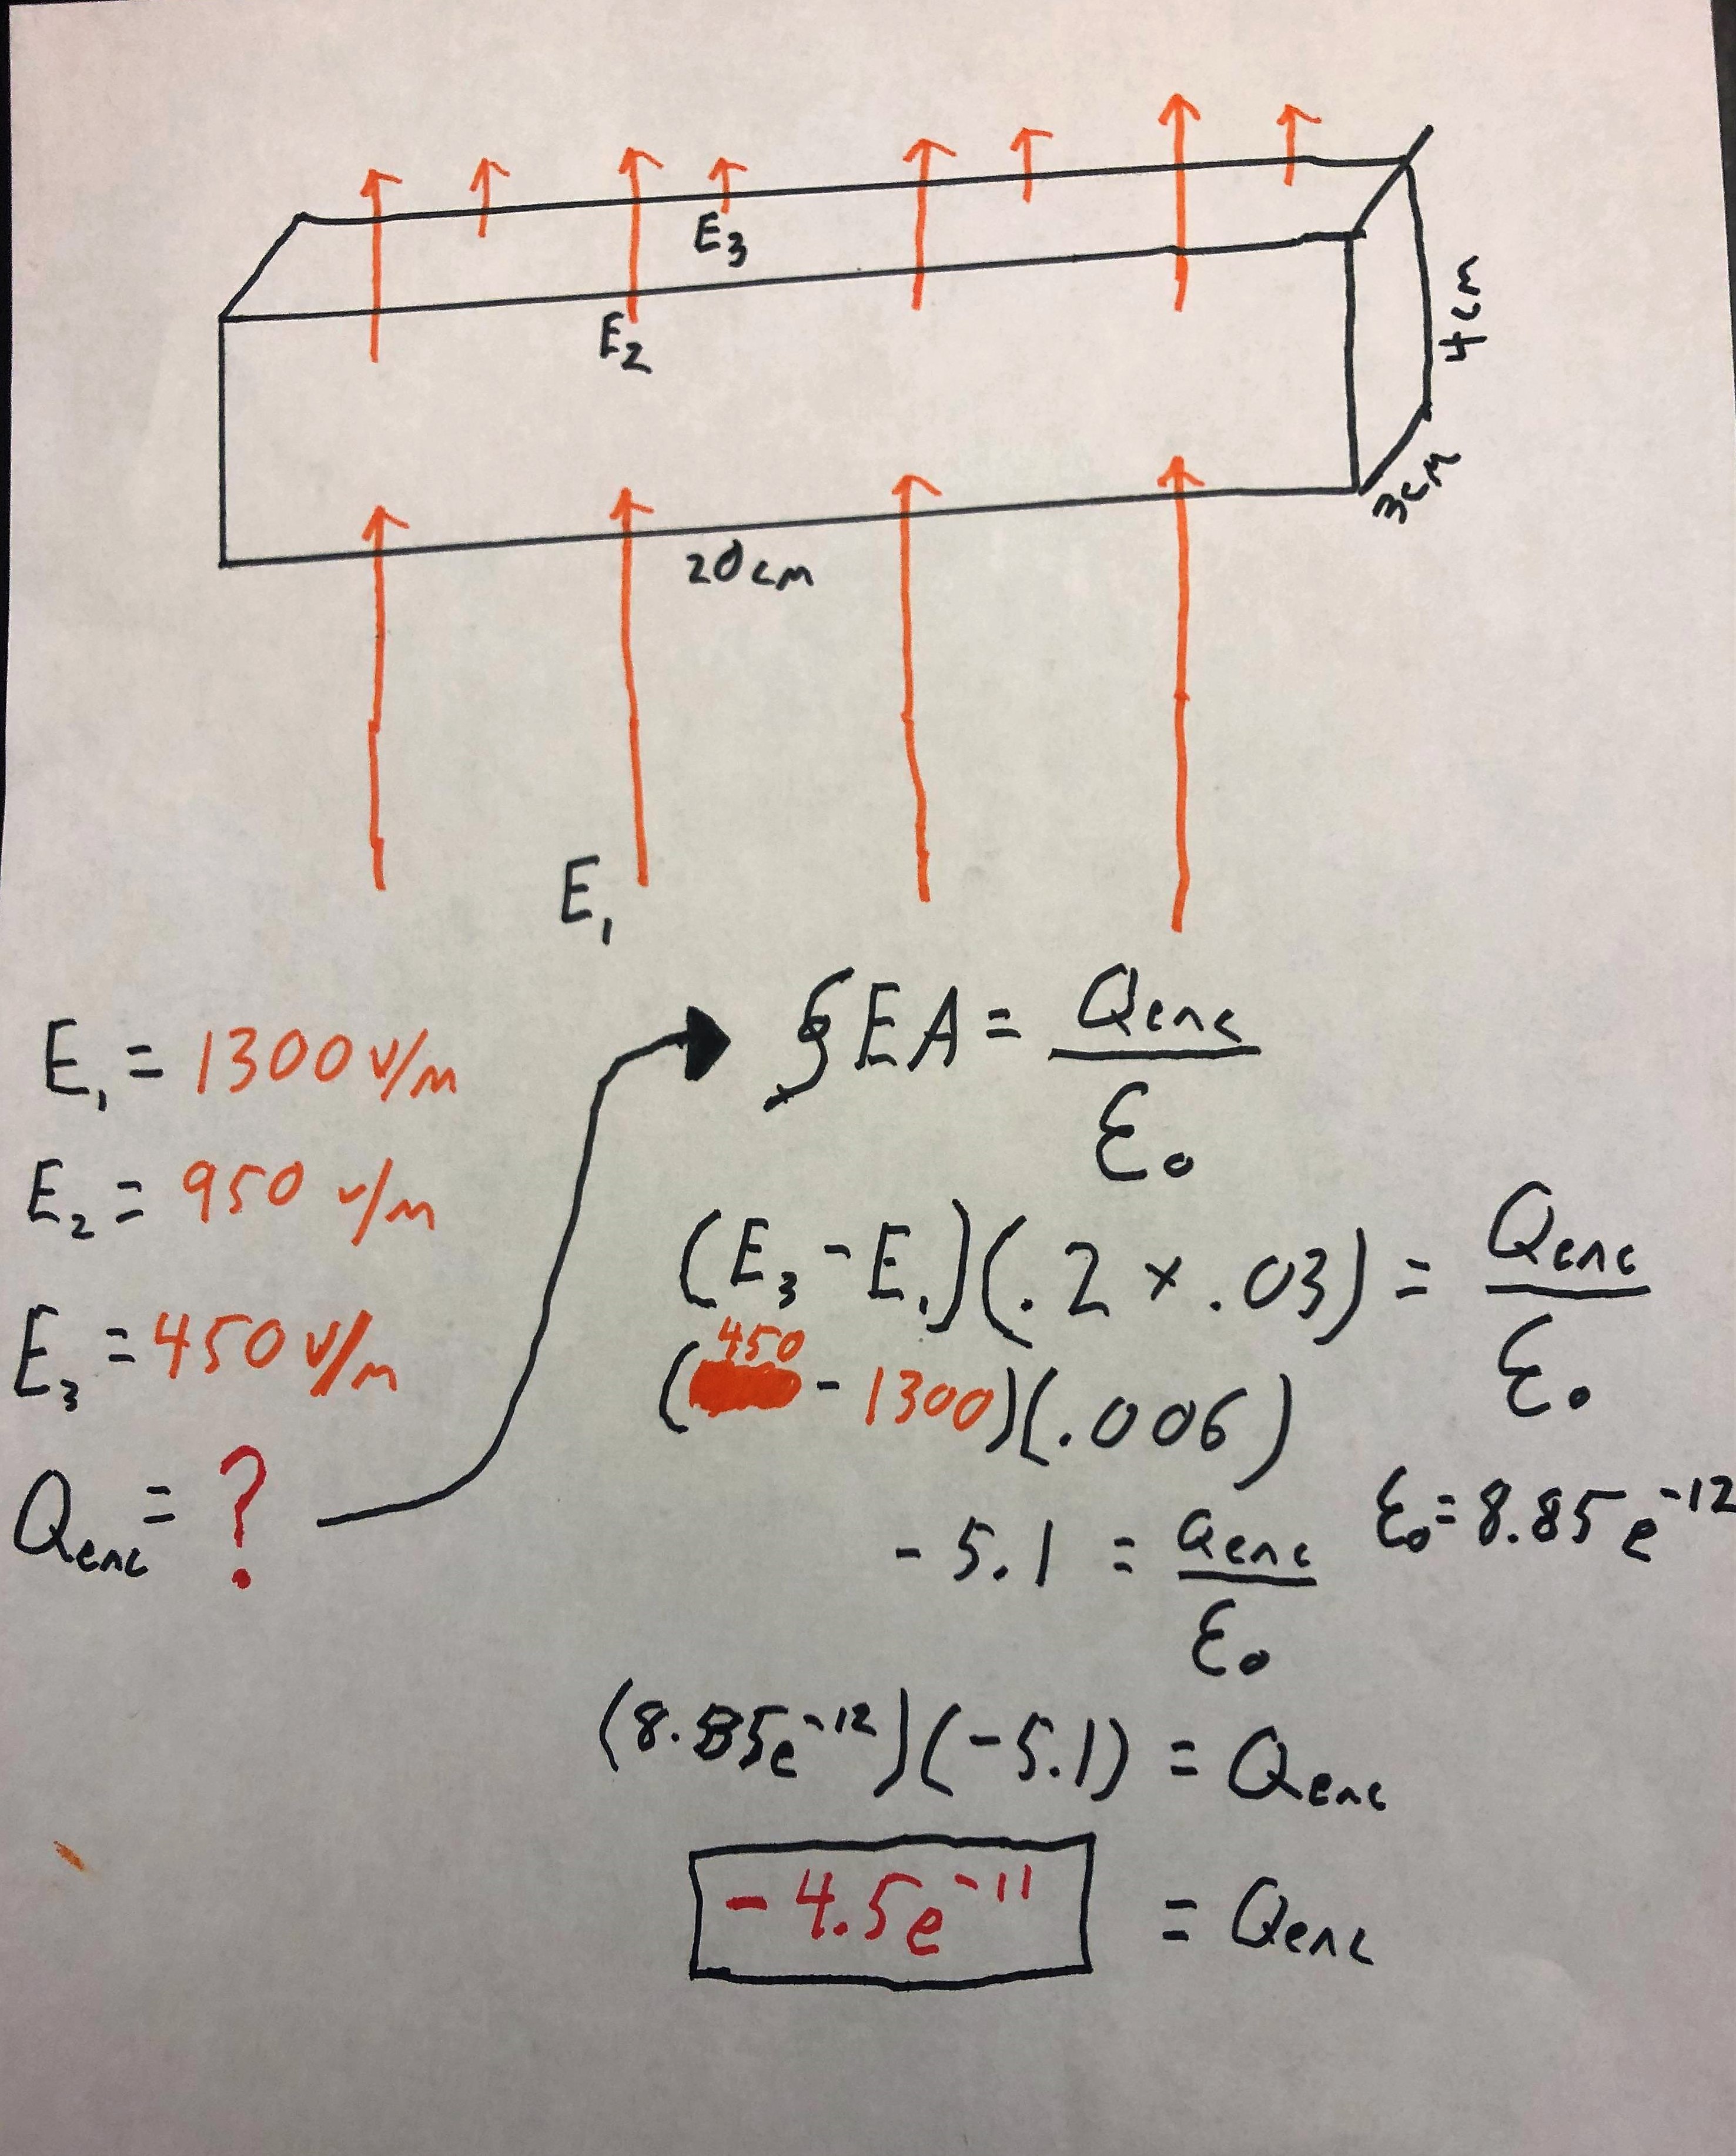 E₃
E₂
4cm
3cm
20cm
E₁
E₁ = 1300 V/m
E₂ = 950 V/m
E₃ = 450 V/m
Qenc = ?
∮EA = Qenc / ε₀
(E₃ - E₁)(.2 × .03) = Qenc / ε₀
(450 - 1300)(.006)
-5.1 = Qenc / ε₀
ε₀ = 8.85e⁻¹²
(8.85e⁻¹²)(-5.1) = Qenc
-4.5e⁻¹¹ = Qenc